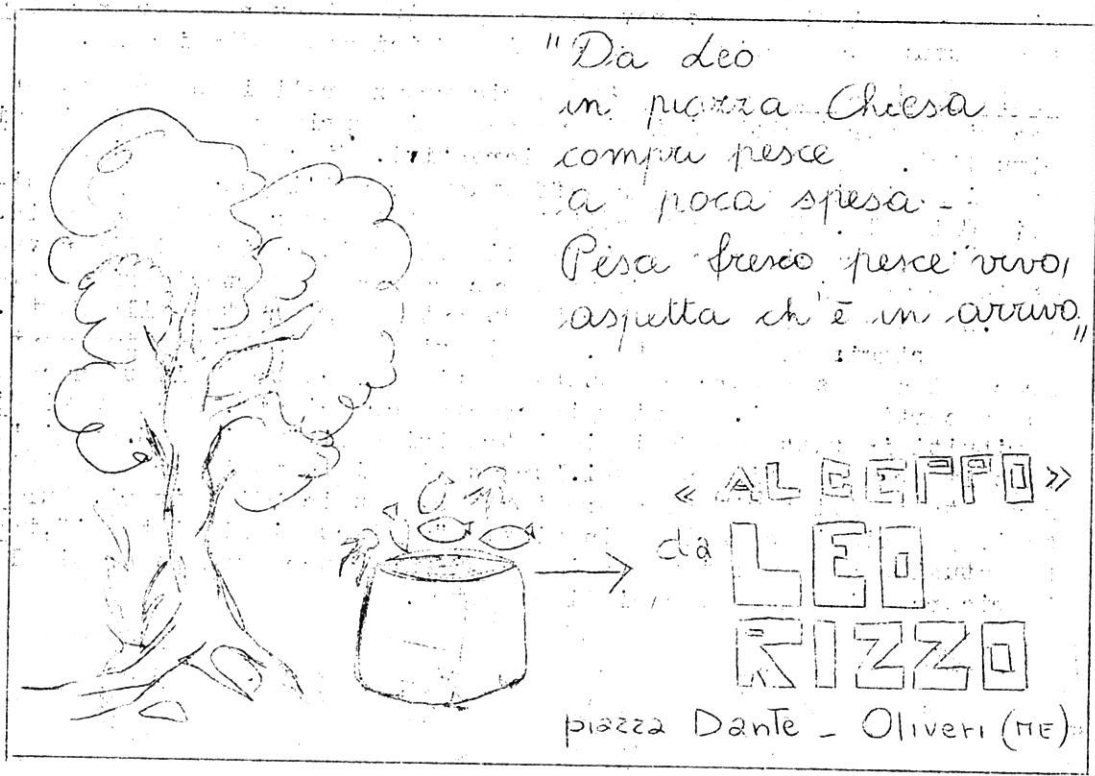 "Da Leo
in piazza Chiesa
compri pesce
a poca spesa -
Pesce fresco pesce vivo,
aspetta ch'è in arrivo"
« AL CEPPO »
da LEO
RIZZO
piazza Dante - Oliveri (ME)